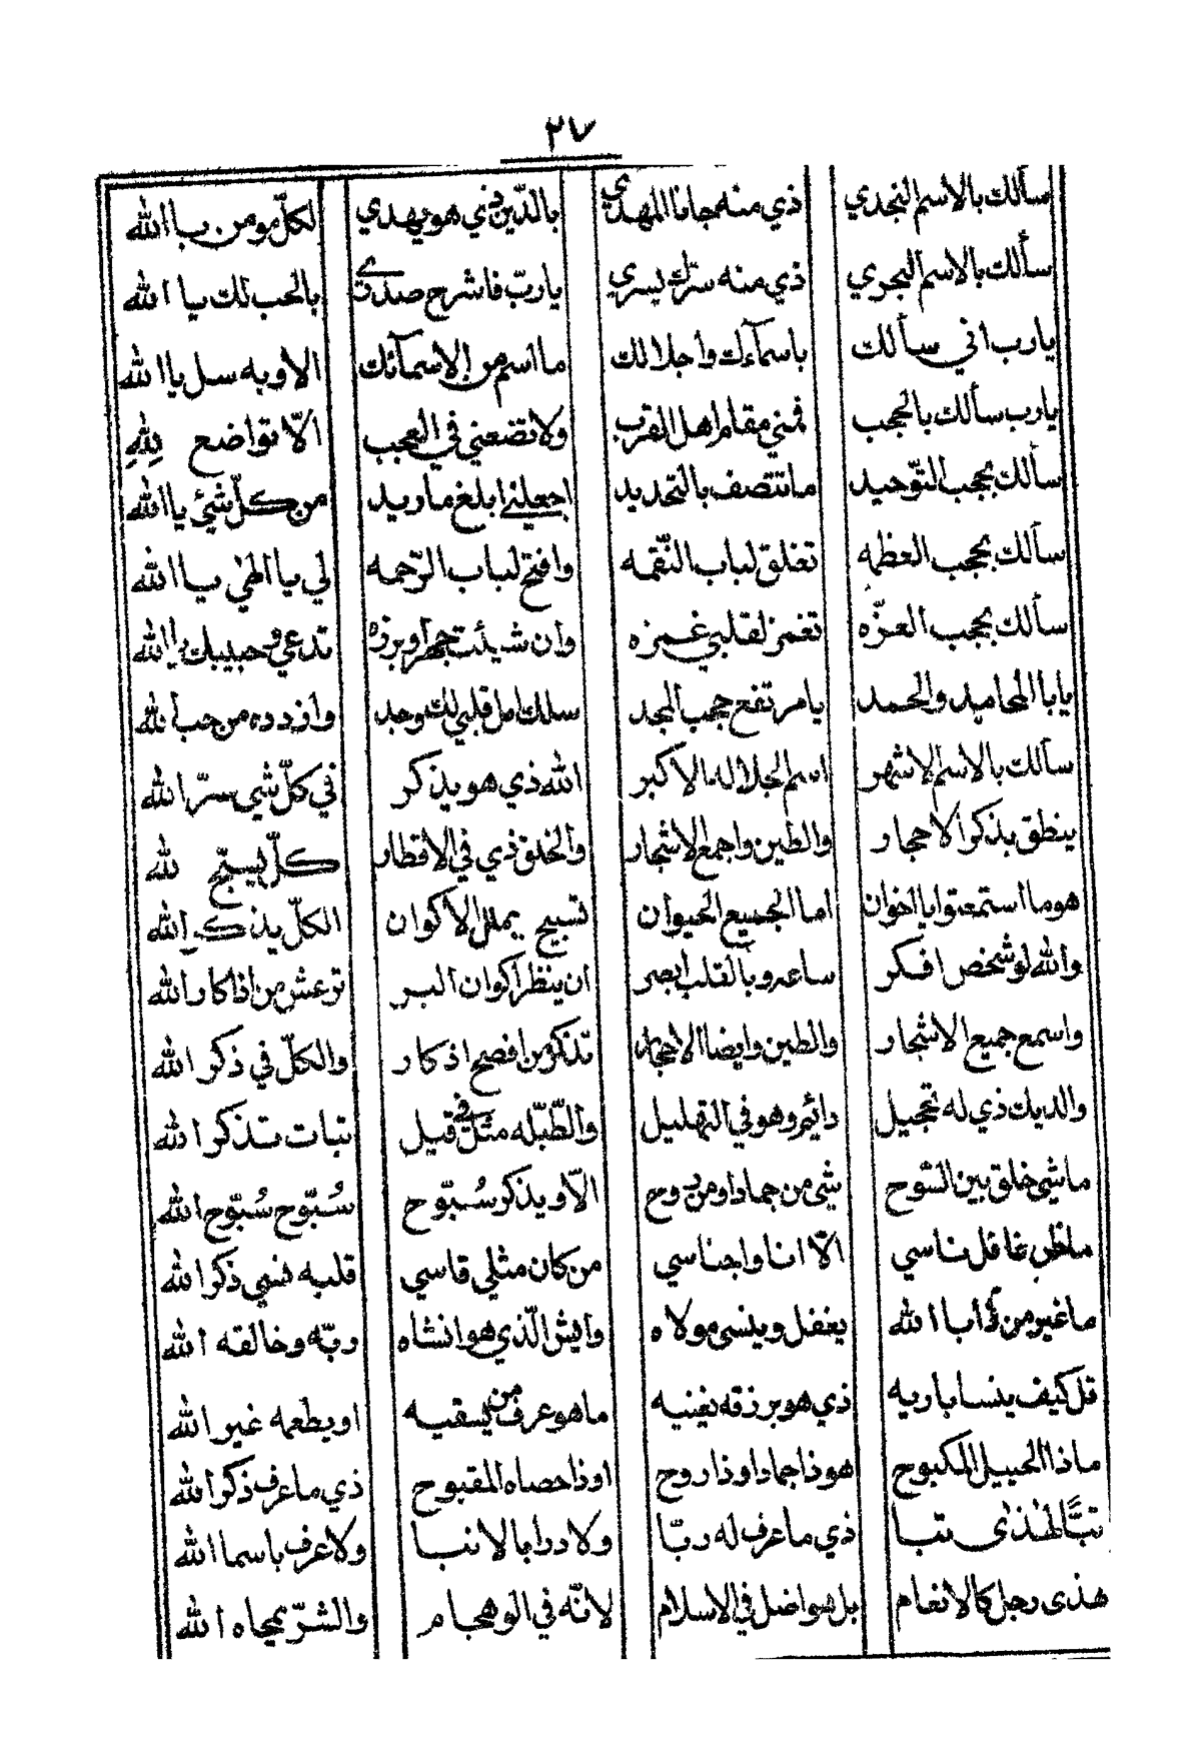 ٢٧
سألك بالاسم النجدي ذي منه جانا المهدي بالدّين ذي هو يهدي لكلّ مومن باالله
سألك بالاسم البجري ذي منه سرّك يسري ياربّ فاشرح صدري بالحب لك يا الله
يارب اني سالك باسمآءك واجلالك مااسم من الاسمآئك الا وبه سل ياالله
يارب سألك بالحجب مقام اهل القرب ولا تضعني في العجب الاّ تواضع لِلهِ
سألك بحجب التّوحيد ما تتصف بالتحديد اجعلني ابلغ ماريد من كلّ شئ ياالله
سألك بحجب العظمه تغلق لباب النّقمه وافتح لباب الرّحمه لي يا الهٰي ياالله
سألك بحجب العزّه تغمز لقلبي غمزه وان شيئت تدعى حبيبك
يابا المحاميد والحمد يا مرتفع حجب المجد سلك املا قلبي لك وجد وازدده من حب الله
سألك بالاسم الاشهر اسم الجلاله الاكبر الله ذي هو يذكر في كلّ شي سرّ الله
ينطق بذكر الاحجار والطين واجمع الاشجار والخلق ذي في الاقطار كلّ يسبّح لله
هوما استمعتوا يا اخوان اما الجميع الحيوان تسبيح يملل الاكوان الكلّ يذكر الله
والله لو شخص افكر ساعه وبالقلب ابصر ان ينظر اكوان البر ترعش من اذكار الله
واسمع جميع الاشجار والطين وايضا الاحجار تذكر من افصح اذكار والكلّ في ذكر الله
والديك ذي له تجيل دائم وهو في التهليل والطّبّله مثله في قيل تبات تذكر الله
ماشي خلق بين السّوح شي من جماد او من روح الاّ ويذكر سُبّوح سُبّوح سُبّوح الله
ماظن غافل ناسي الاّ انا واجناسي من كان مثلي قاسي قلبه نسي ذكر الله
ما غير من ابا الله يغفل وينسى مولاه وايش الّذي هو انشاه وربّه وخالقه الله
قل كيف ينسا باريه ذي هو برزقه يغنيه ما هو عرف من يسقيه او يطعمه غير الله
ماذا الحبيل المكبوح هوذا جماد اوذا روح اوذا حصاه المقبوح ذي ما عرف ذكر الله
تبًّا لهٰذىٰ تبا ذي ما عرف له ربّا ولا درا بالانبا ولا عرف باسما الله
هذى رجل كالانعام بل هو اضل في الاسلام لانّه في الوهجام والشرّ يمجاه الله